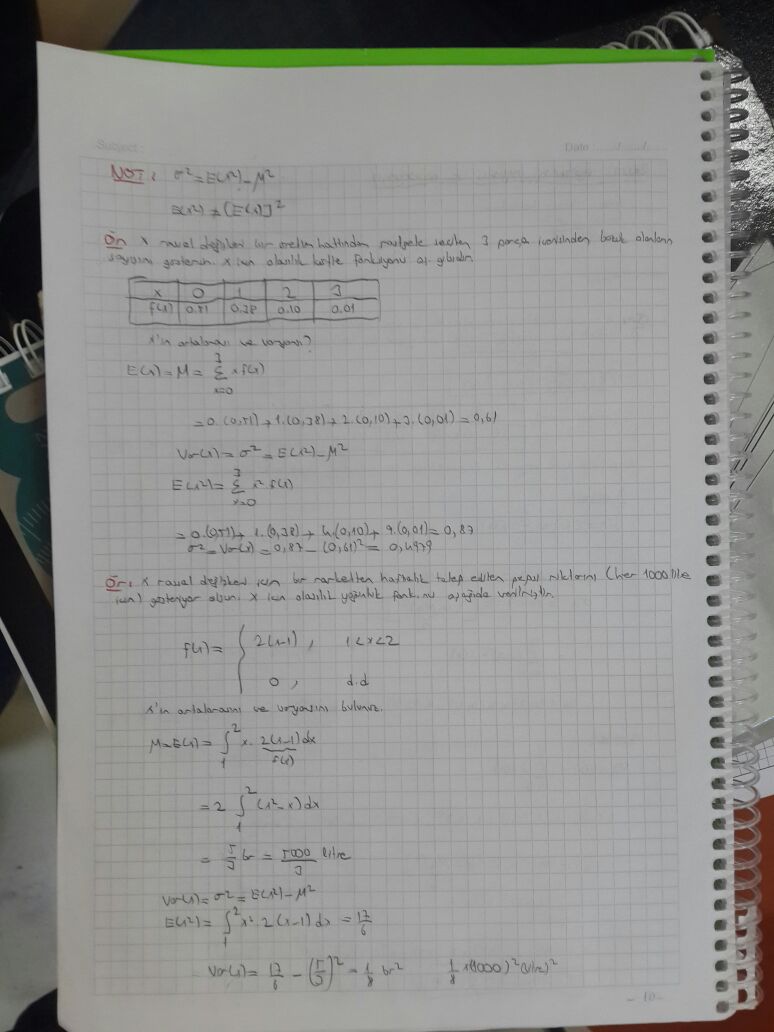 Subject :
Date ...../...../.....
NOT: σ² = E(x²) - M²
E(x²) ≠ [E(x)]²
Ör: x rassal değişken bir üretim hattından rastgele seçilen 3 parça içerisinden bozuk olanların
sayısını göstersin. x için olasılık kütle fonksiyonu aş. gibidir.
x 0 1 2 3
f(x) 0.51 0.38 0.10 0.01
x'in ortalaması ve varyansı?
E(x) = M = Σ_{x=0}^{3} x f(x)
= 0.(0,51) + 1.(0,38) + 2.(0,10) + 3.(0,01) = 0,61
Var(x) = σ² = E(x²) - M²
E(x²) = Σ_{x=0}^{3} x² f(x)
= 0.(0,51) + 1.(0,38) + 4.(0,10) + 9.(0,01) = 0,87
σ² = Var(x) = 0,87 - (0,61)² = 0,4979
Ör: x rassal değişken için bir marketten haftalık talep edilen pepsi miktarını (her 1000 litre
için) gösteriyor olsun. x için olasılık yoğunluk fonk.nu aşağıda verilmiştir.
f(x) = { 2(x-1) , 1 < x < 2
0 , d.d
x'in ortalamasını ve varyansını bulunuz.
M = E(x) = ∫₁² x. 2(x-1) dx
f(x)
= 2 ∫₁² (x² - x) dx
= 5/3 br = 5000/3 litre
Var(x) = σ² = E(x²) - M²
E(x²) = ∫₁² x². 2(x-1) dx = 17/6
Var(x) = 17/6 - (5/3)² = 1/8 br² 1/8 x(1000)² (litre)²
- 10 -